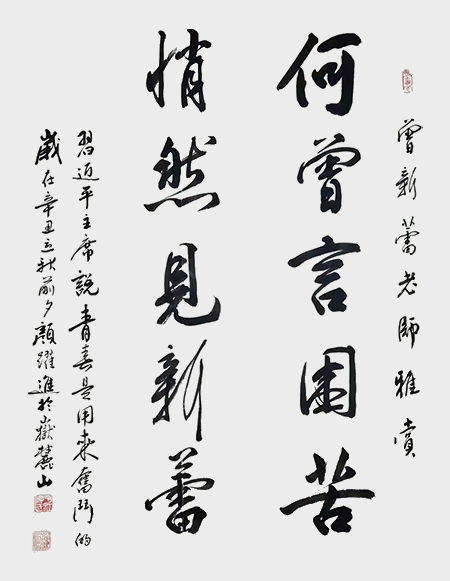 曾新蕾老師雅賞
何曾言困苦
悄然見新蕾
習近平主席説青春是用来奮鬥的
歲在辛丑立秋前夕顏躍進於嶽麓山